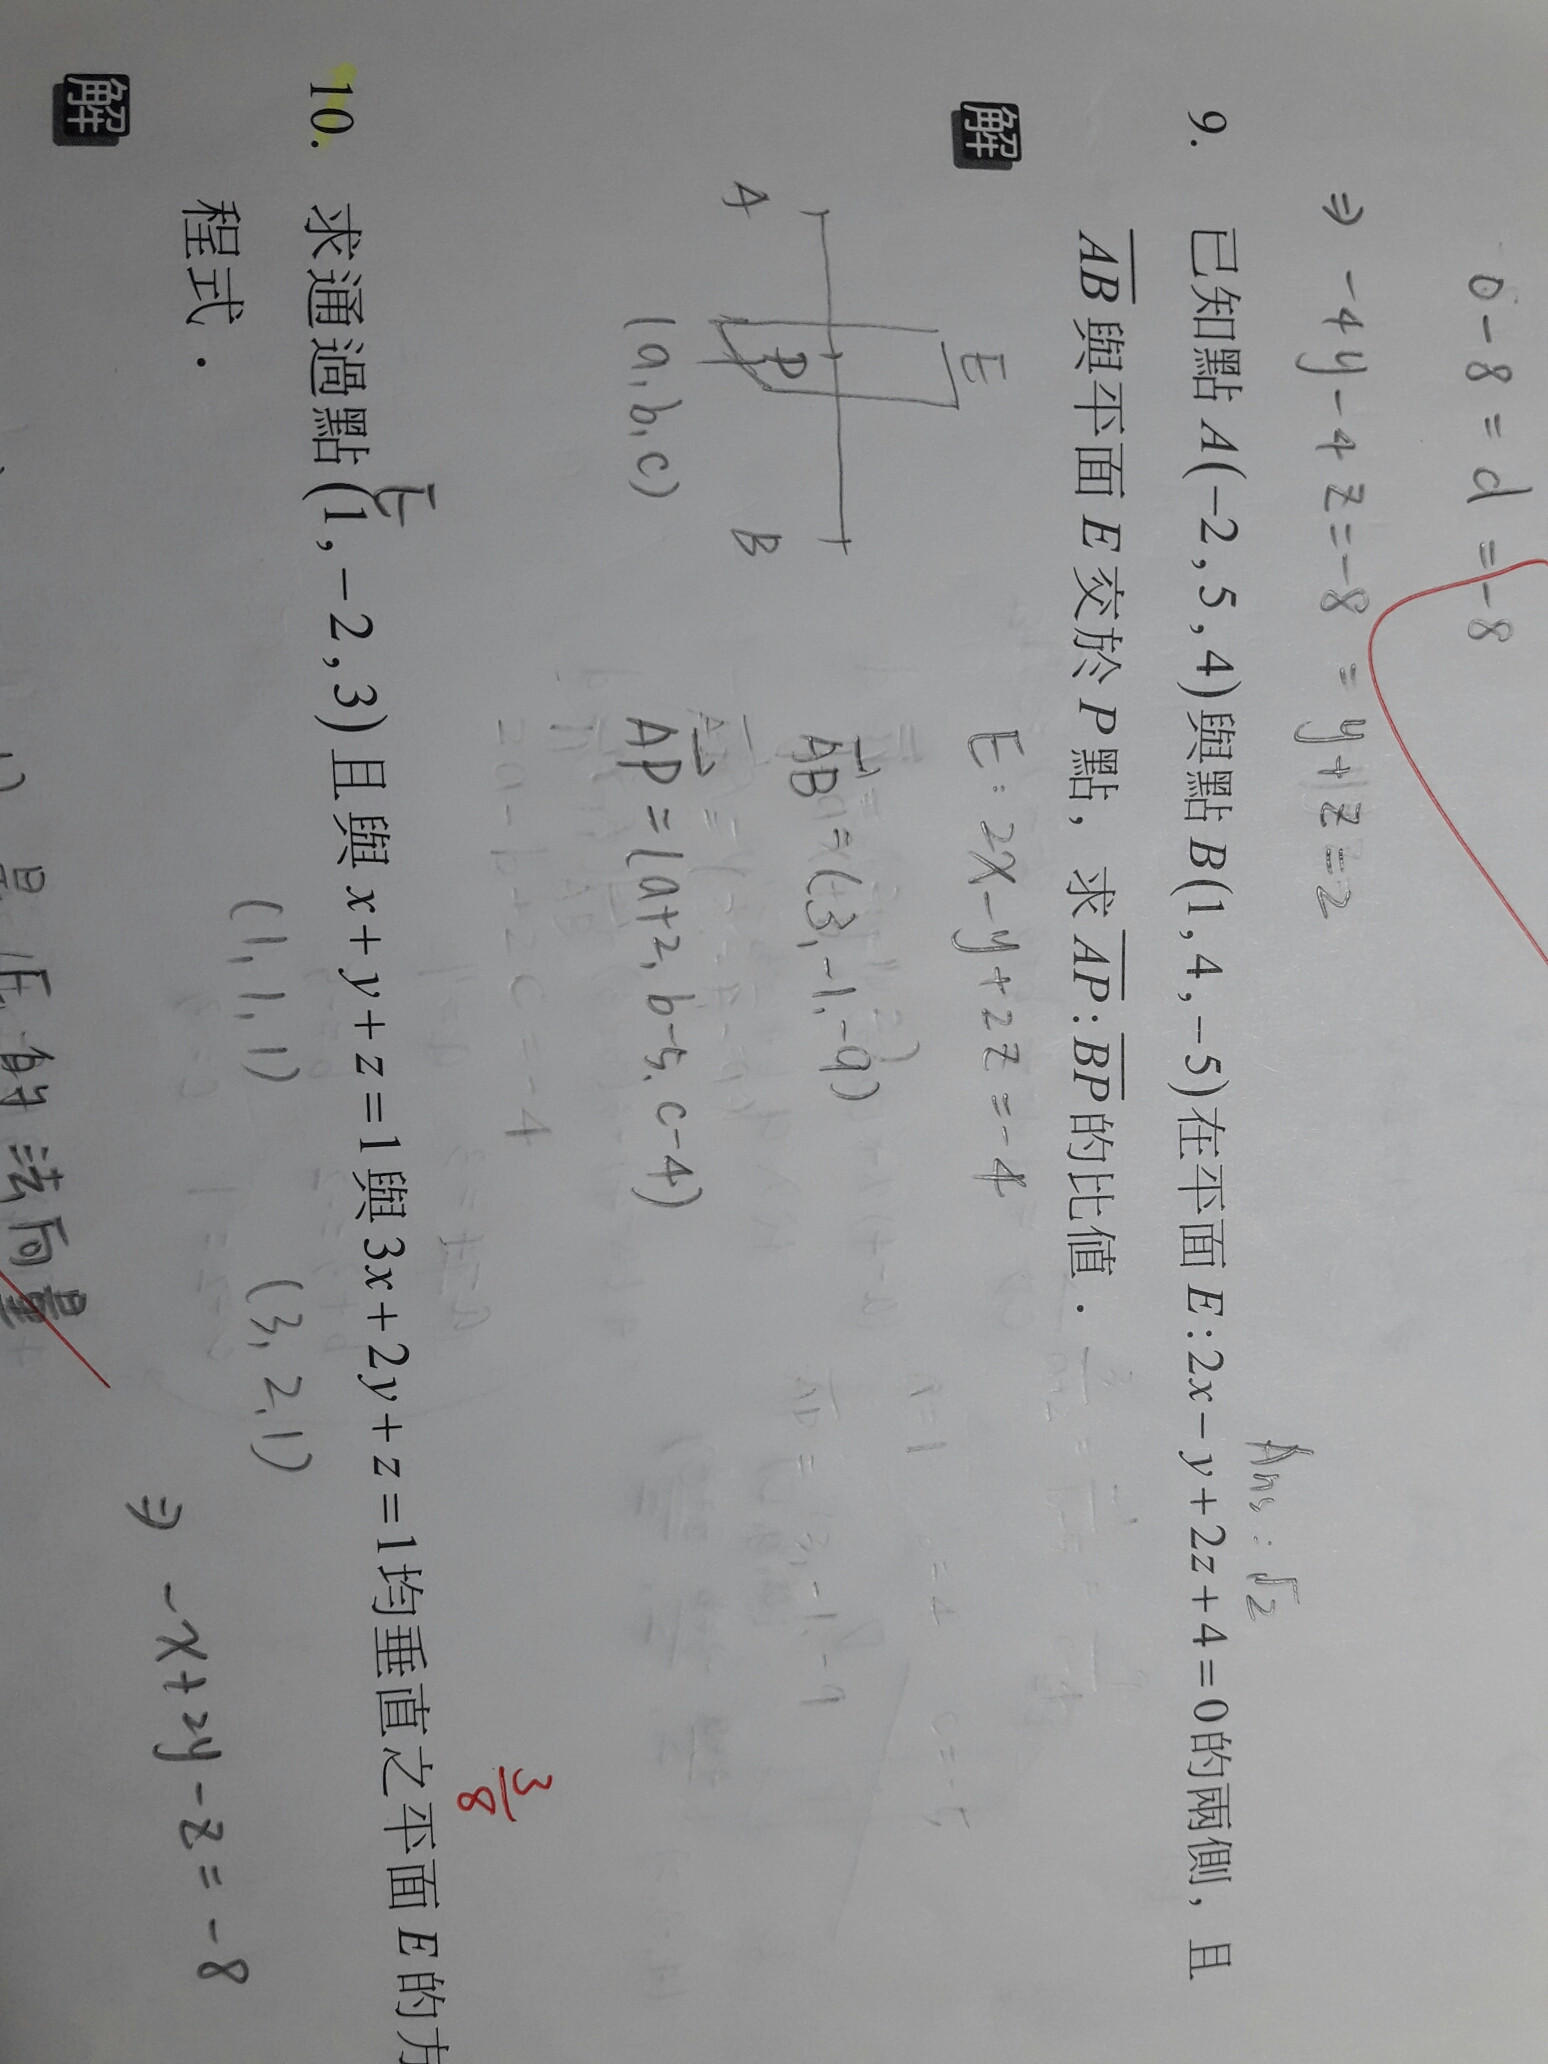 0-8=d=-8
⇒ -4y-4z=-8 = y+z=2
Ans: √2
9. 已知點 A(-2,5,4)與點 B(1,4,-5)在平面 E:2x-y+2z+4=0的兩側，且
AB 與平面 E 交於 P 點，求 AP:BP 的比值．
解
E: 2x-y+2z=-4
E
A P B
(a,b,c)
AB=(3,-1,-9)
AP=(a+2, b-5, c-4)
3/8
10. 求通過點(1,-2,3)且與 x+y+z=1與 3x+2y+z=1均垂直之平面 E 的方
E
程式．
(1,1,1) (3,2,1)
解
⇒ -x+2y-z=-8
的法向量